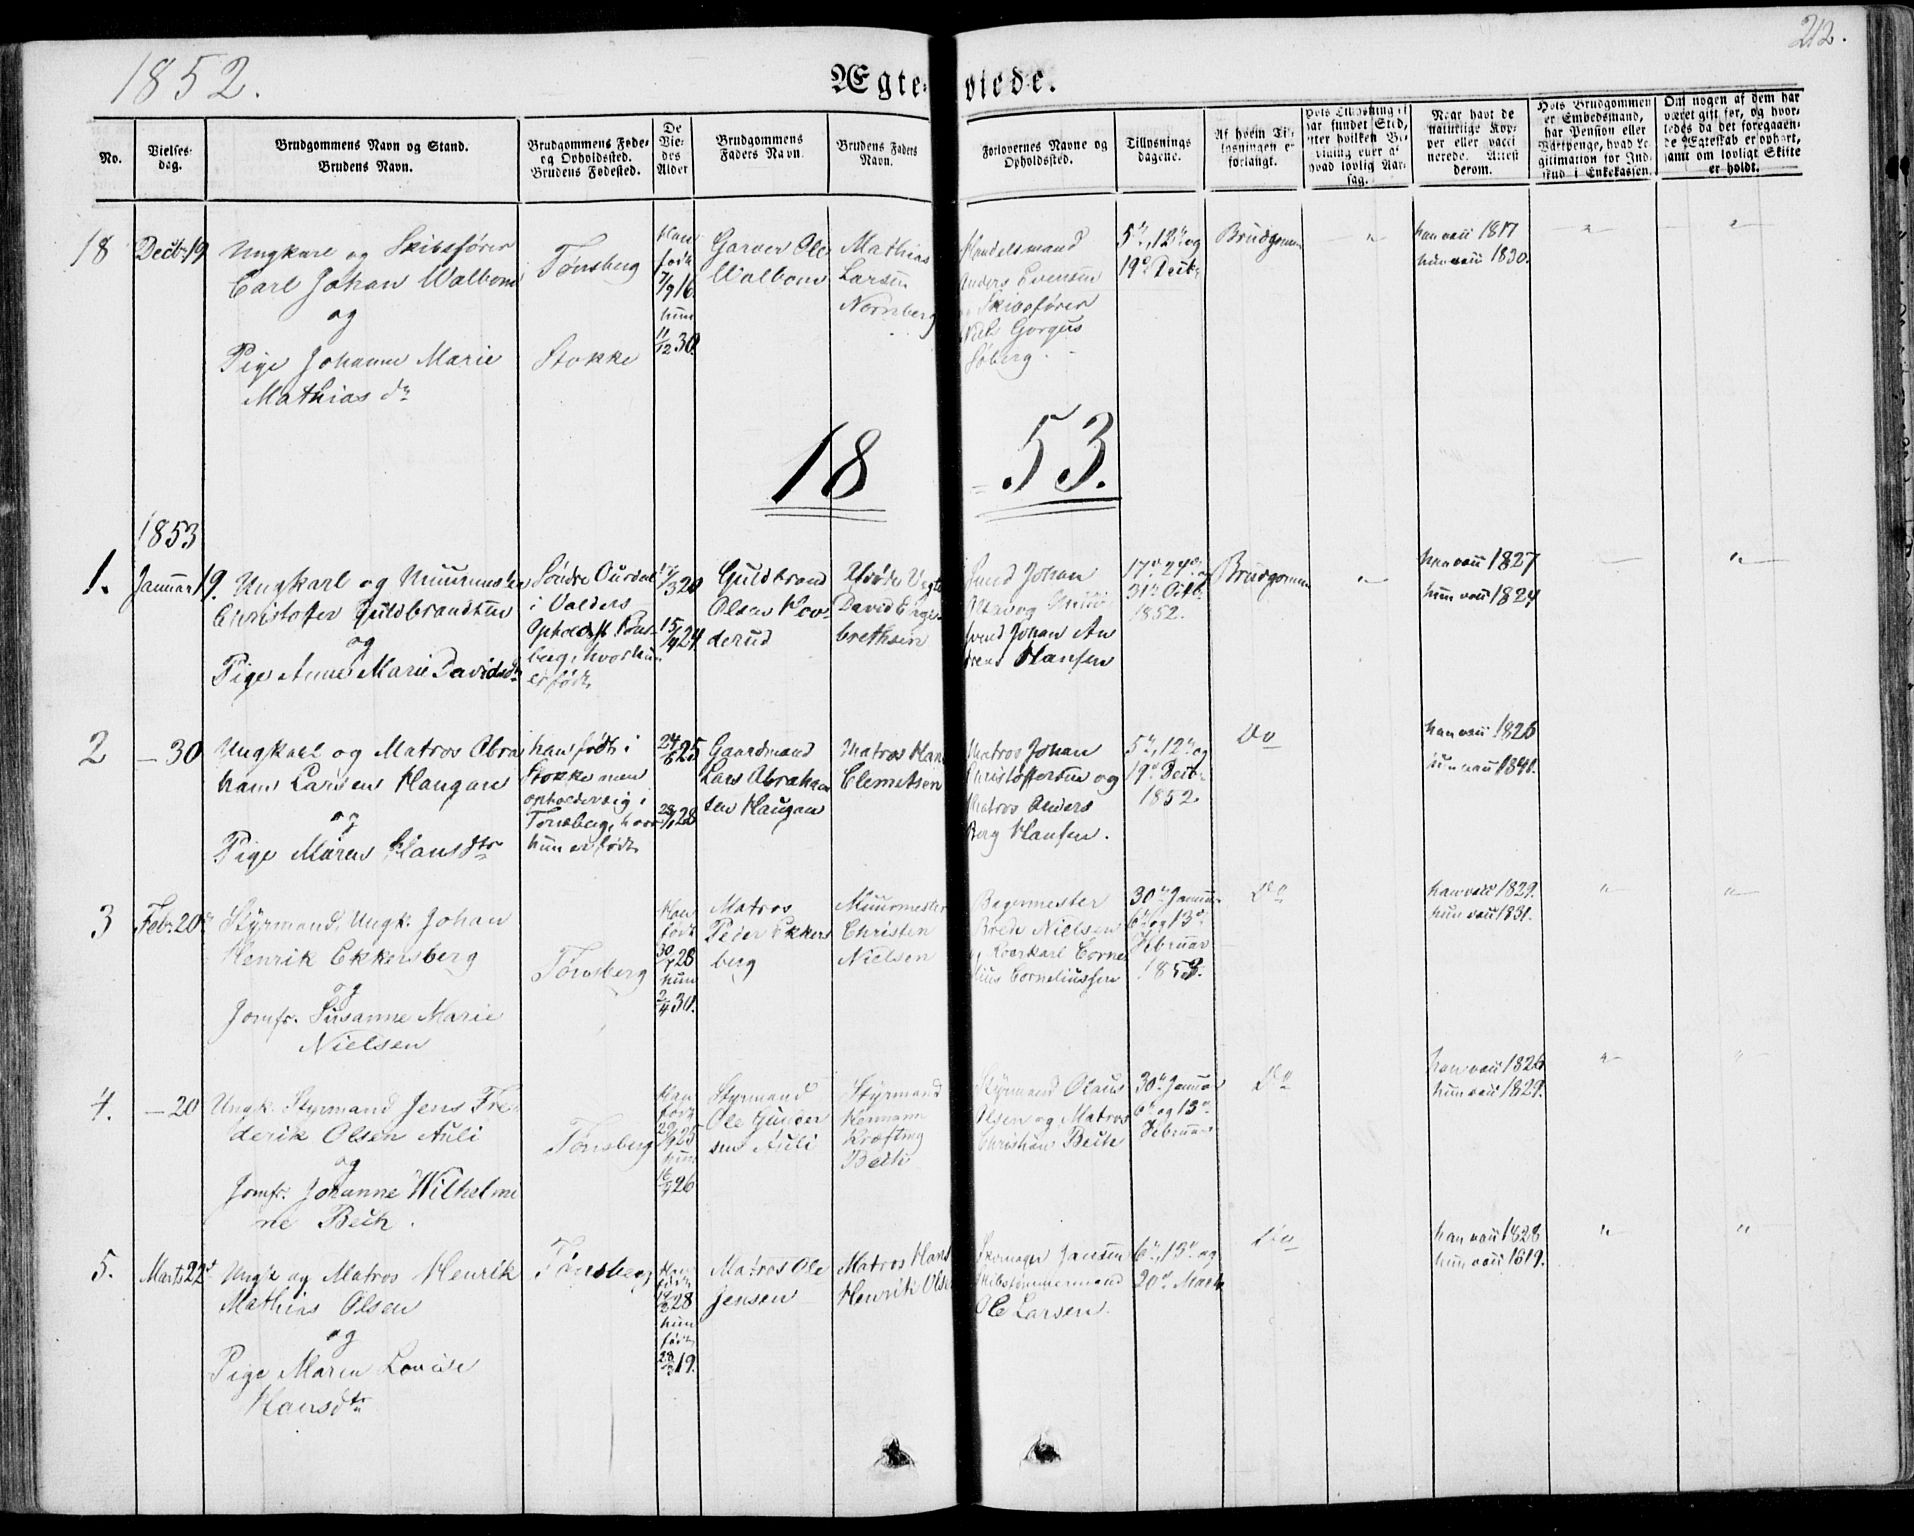 1852.
212.
Ægteviede.
No.
Vielsesdag.
Brudgommens Navn og Stand.
Brudens Navn.
Brudgommens Føde-
og Opholdssted.
Brudens Fødested.
De
Vie-
des
Alder
Brudgommens
Faders Navn.
Brudens Faders
Navn.
Forlovernes Navne og
Opholdssted.
Tillysnings
dagene.
Af hvem Til-
lysningen er
forlangt.
har fundet Sted,
efter hvilken Be-
hvad lovlig Aar-
sag.
Naar havt de
naturlige Kop-
per eller vacci
nerede. Attest
derom.
Hvis Brudgommen
er Embedsmand,
har Pension eller
Vartpenge, hvad Le-
gitimation for Ind-
skud i Enkekassen.
Om nogen af dem har
været gift før, og hvor-
ledes da det foregaaen-
de Ægteskab er ophørt,
samt om lovligt Skifte
er holdt.
18
Decbr 19
Ungkarl og Skibsfører
Carl Johan Walbom
og
Pige Johanne Marie
Mathias dr
Tønsberg
Stokke
Han
født
7/9 16.
hun
11/12 30.
Garver Ole
Walbom
Mathias
Larsen
Nornberg
Handelsmand
Anders Evensen
Skibsfører
Niels Gorgus
Søberg.
5te, 12te og
19de Decbr
Brudgommen
"
han vacc 1817
hun vacc 1830.
"
"
18 53.
1853
1.
Januar 19.
Ungkarl og
Christoffer Guldbrandsen
og
Pige Anne Marie Davidsdr
Søndre Ourdal
i Valders
Opholdst Tøns-
berg, hvor hun
er født
17/3 20
15/4 24
Guldbrand
Olsen
derud
Afdøde
David Enge-
brethsen
Svend Johan
Svend Johan An
dreas Hansen
17de 24de og
31te Octb.
1852.
Brudgommen
"
han vacc 1827
hun vacc 1824
"
2
— 30
Ungkarl og Matros Abra
ham Larsen Haugan
og
Pige Maren Hansdtr
han født i
Stokke men
opholder sig i
Tønsberg, hvor
hun er født
24/6 25
28/1 28
Gaardmand
Lars Abraham
sen Haugan
Matros Hans
Clemetsen
Matros Johan
Christoffersen og
Matros Anders
Berg Hansen.
5te, 12te og
19de Decbr
1852
Do
han vacc 1826
hun vacc 1841.
3
Febr 20de
Styrmand, Ungk. Johan
Henrik Ekkersberg
og
Jomfr. Susanne Marie
Nielsen
Tønsberg
Han
født
30/7 28
hun
2/4 30.
Matros
Peder Ekkers
berg
Muurmester
Christen
Nielsen
Bagermester
Brede Nielsen
og Kvaskarl Corne
lius Corneliussen
30te Januar
6te og 13de
Februar
1853.
Do
han vacc 1829.
hun vacc 1831.
"
"
4.
— 20
Ungk. Styrmand Jens Fre-
derik Olsen Auli
og
Jomfr. Johanne Wilhelmi
ne Bech.
Tønsberg
Han
født
29/9 25
hun
16/7 26
Styrmand
Ole Gulder
sen Auli
Styrmand
Hermann
Krøfting
Bech
Styrmand Olaus
Olsen og Matros
Christian Bech
30te Januar
6te og 13de
Februar
Do
han vacc 1826
hun vacc 1829.
"
"
5.
Marts 22de
Ungk og Matros Henrik
Mathias Olsen
og
Pige Maren Lovise
Hansdtr
Tønsberg
Han
født
28
hun
født
28/3 19.
Matros Ole
Jensen
Matros Hans
Henrik Olsen
Skomager Jansen
Skibstømmermand
Ole Larsen.
6te, 13de og
20de Marts
Do
han vacc 1828
hun vacc 1819.
"
"